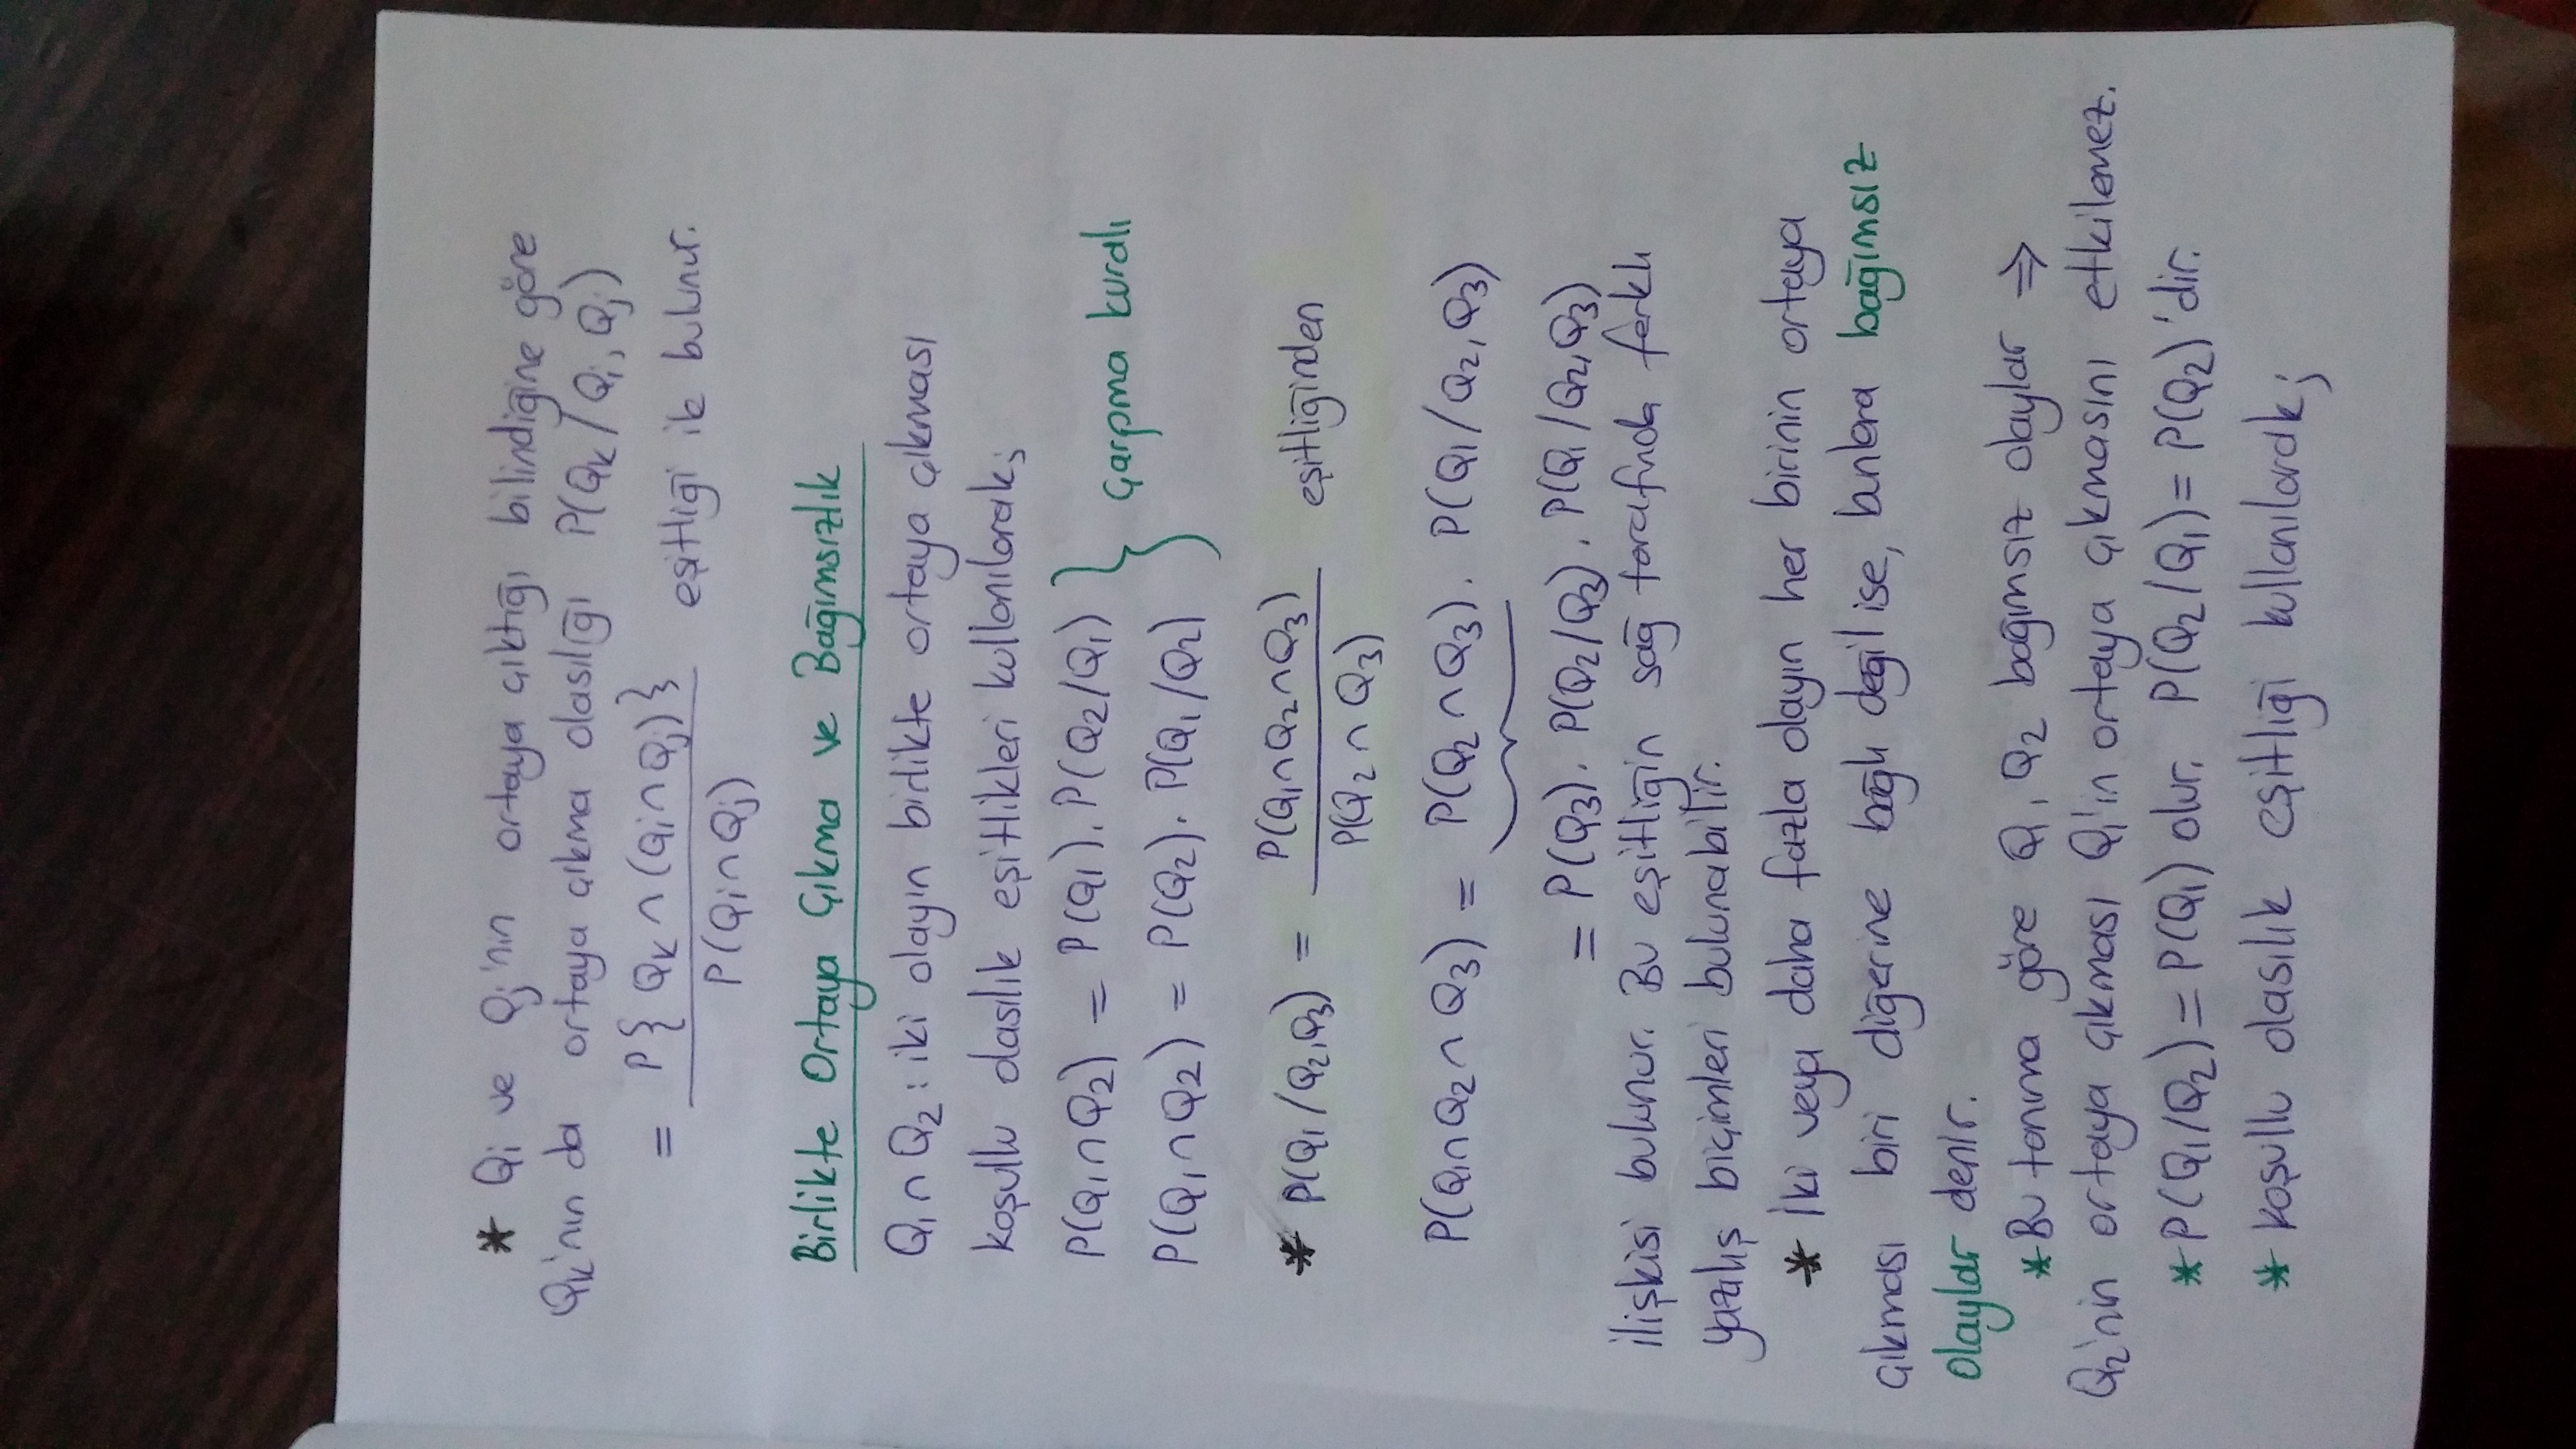 * Qi ve Qj'nin ortaya çıktığı bilindiğine göre
Qk'nın da ortaya çıkma olasılığı P(Qk / Qi, Qj)
= P{ Qk ∩ (Qi ∩ Qj)} / P(Qi ∩ Qj) eşitliği ile bulunur.
Birlikte Ortaya Çıkma ve Bağımsızlık
Q1 ∩ Q2 : iki olayın birlikte ortaya çıkması
koşullu olasılık eşitlikleri kullanılarak;
P(Q1 ∩ Q2) = P(Q1). P(Q2/Q1)
P(Q1 ∩ Q2) = P(Q2). P(Q1/Q2)
} çarpma kuralı
* P(Q1 / Q2,Q3) = P(Q1 ∩ Q2 ∩ Q3) / P(Q2 ∩ Q3) eşitliğinden
P(Q1 ∩ Q2 ∩ Q3) = P(Q2 ∩ Q3). P(Q1 / Q2, Q3)
= P(Q3). P(Q2/Q3). P(Q1/Q2,Q3)
ilişkisi bulunur. Bu eşitliğin sağ tarafında farklı
yazılış biçimleri bulunabilir.
* İki veya daha fazla olayın her birinin ortaya
çıkması biri diğerine bağlı değil ise, bunlara bağımsız
olaylar denir.
* Bu tanıma göre Q1, Q2 bağımsız olaylar ⇒
Q2'nin ortaya çıkması Q1'in ortaya çıkmasını etkilemez.
* P(Q1/Q2) = P(Q1) olur. P(Q2/Q1) = P(Q2)'dir.
* Koşullu olasılık eşitliği kullanılarak;